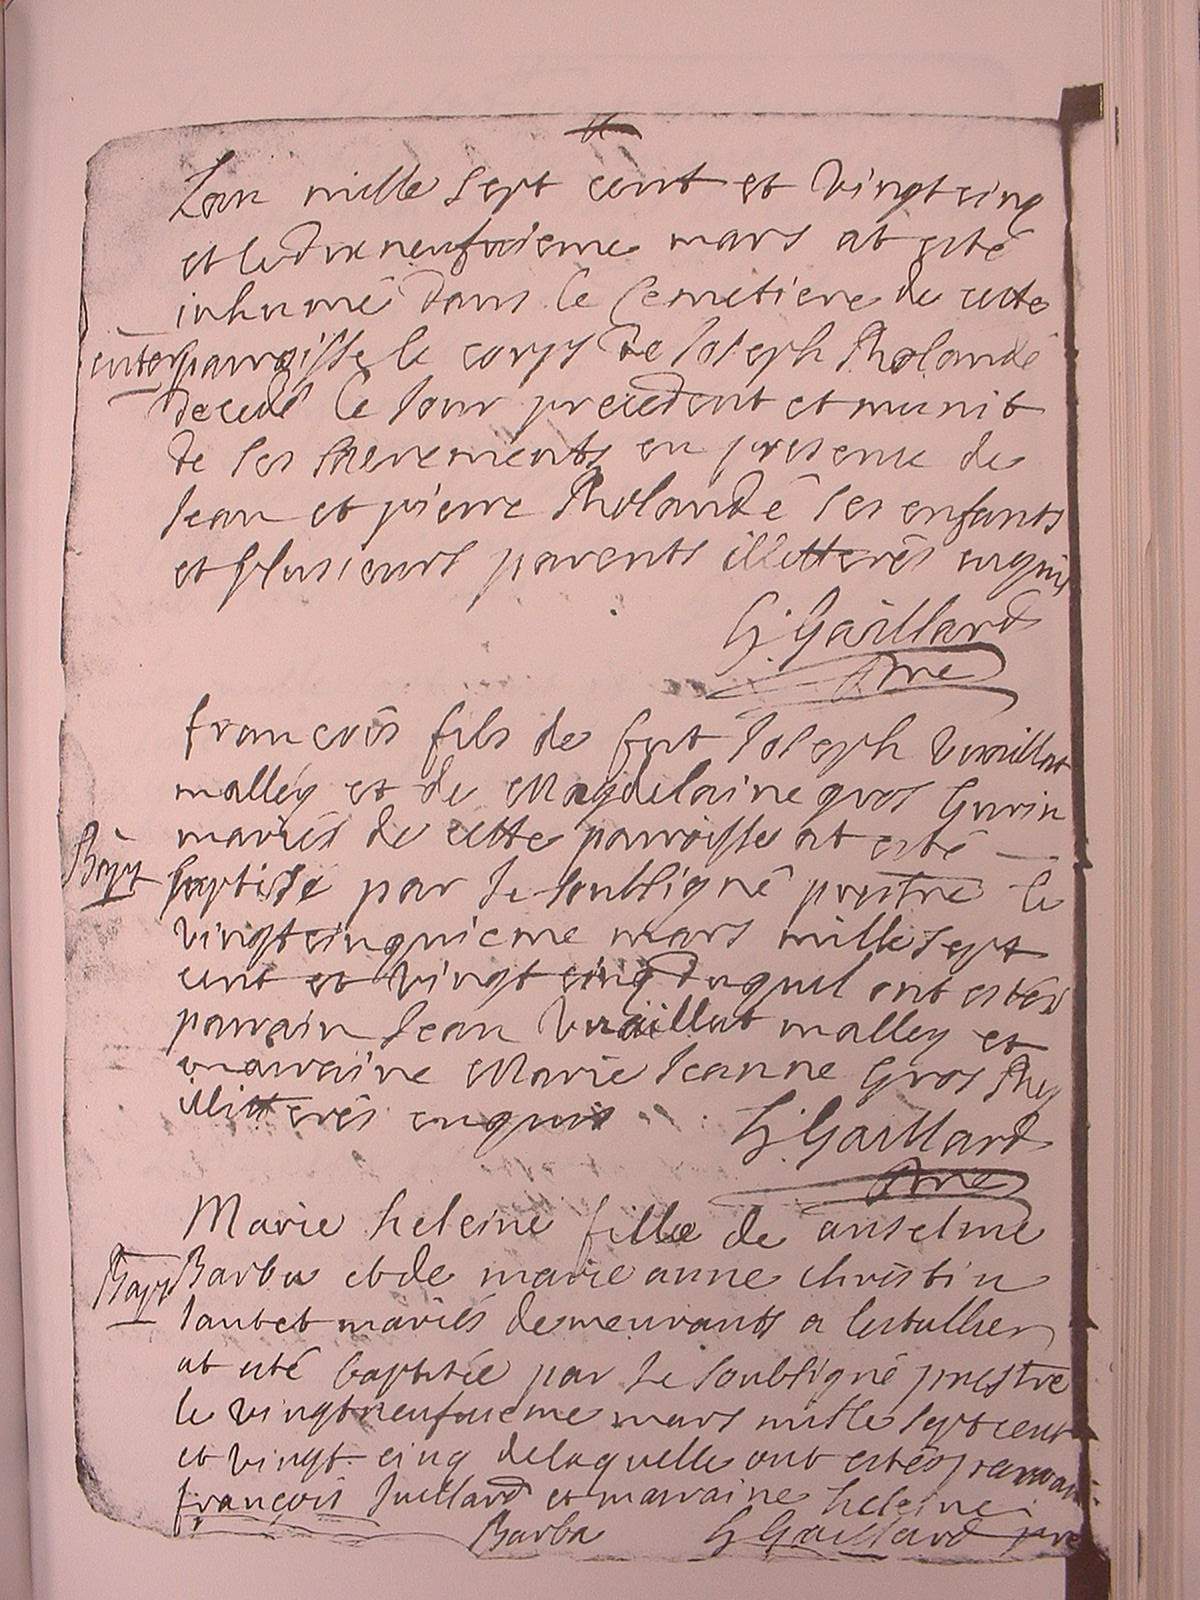 Lan mille sept cent et vingt cinq
et le dix neufvieme mars at esté
inhumé dans le Cemetiere de cette
enter parroisse le corps de Joseph Rholandé
decedé le Jour precedent et munit
de ses Sacrements en presence de
Jean et pierre Rholandé ses enfants
et plusieurs parents illitterés enquis
G: Gaillard
Pre
francois fils de fut Joseph Vuaillat
malley et de Magdelaine gros Gurin
mariés de cette parroisse at esté
Bapt baptisé par Je soubsigné prestre le
vingt cinquieme mars mille sept
cent et vingt cinq duquel ont estés
parrain Jean Vuaillat malley et
marraine Marie Jeanne Gros
illitterés enquis
G: Gaillard
Pre
Marie heleine fille de anselme
Bapt Barba et de marie anne christin
mariés demeurants a
at esté baptisée par Je soubsigné prestre
le vingt neufvieme mars mille sept cent
et vingt cinq de laquelle ont estés parrain
françois Juillard et marraine heleine
Barba G Gaillard pre